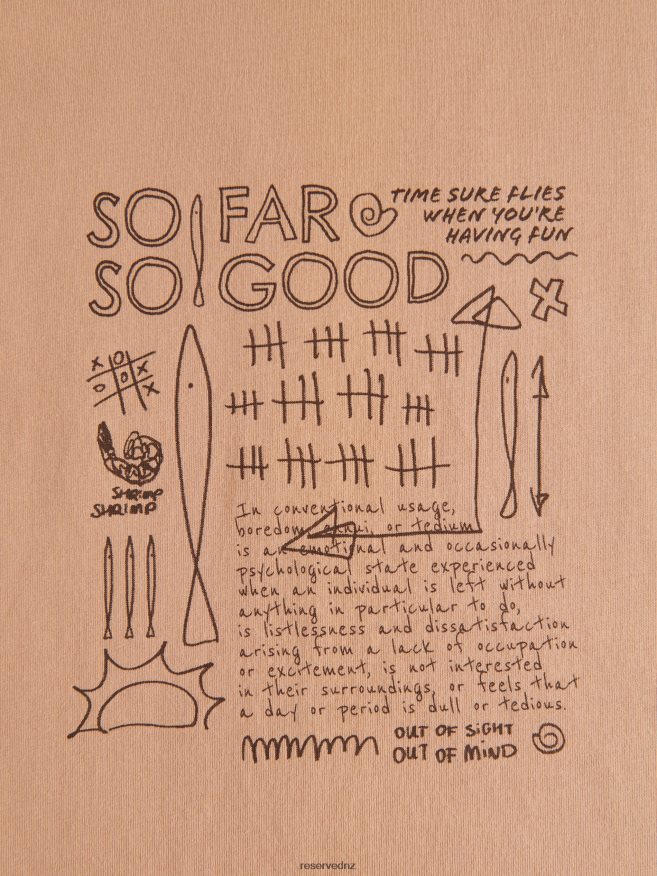 SO FAR
SO GOOD
TIME SURE FLIES
WHEN YOU'RE
HAVING FUN
X O X
O X
SHRIMP
SHRIMP
In conventional usage,
boredom, ennui, or tedium
is an emotional and occasionally
psychological state experienced
when an individual is left without
anything in particular to do,
is listlessness and dissatisfaction
arising from a lack of occupation
or excitement, is not interested
in their surroundings, or feels that
a day or period is dull or tedious.
OUT OF SiGHT
OUT OF MiND
reservednz